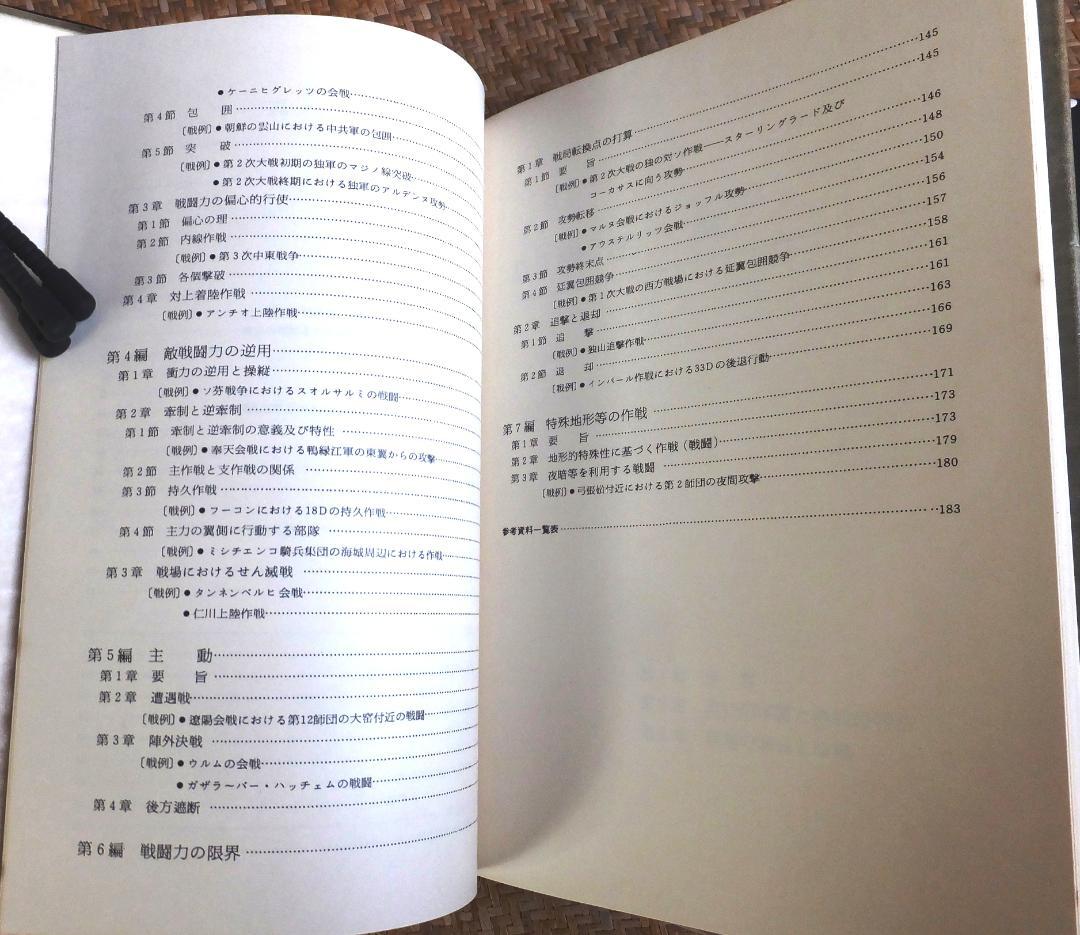 ●ケーニヒグレッツの会戦
第4節 包 囲
〔戦例〕●朝鮮の雲山における中共軍の包囲
第5節 突 破
〔戦例〕●第2次大戦初期の独軍のマジノ線突破
●第2次大戦終期における独軍のアルデンヌ攻勢
第3章 戦闘力の偏心的行使
第1節 偏心の理
第2節 内線作戦
〔戦例〕●第3次中東戦争
第3節 各個撃破
第4章 対上着陸作戦
〔戦例〕●アンチオ上陸作戦
第4編 敵戦闘力の逆用
第1章 衝力の逆用と操縦
〔戦例〕●ソ芬戦争におけるスオルサルミの戦闘
第2章 牽制と逆牽制
第1節 牽制と逆牽制の意義及び特性
〔戦例〕●奉天会戦における鴨緑江軍の東翼からの攻撃
第2節 主作戦と支作戦の関係
第3節 持久作戦
〔戦例〕●フーコンにおける18Dの持久作戦
第4節 主力の翼側に行動する部隊
〔戦例〕●ミシチェンコ騎兵集団の海城周辺における作戦
第3章 戦場におけるせん滅戦
〔戦例〕●タンネンベルヒ会戦
●仁川上陸作戦
第5編 主 動
第1章 要 旨
第2章 遭遇戦
〔戦例〕●遼陽会戦における第12師団の大窑付近の戦闘
第3章 陣外決戦
〔戦例〕●ウルムの会戦
●ガザラ〜バー・ハッチェムの戦闘
第4章 後方遮断
第6編 戦闘力の限界
第1章 戦局転換点の打算 145
第1節 要 旨 145
〔戦例〕●第2次大戦の独の対ソ作戦――スターリングラード及び
コーカサスに向う攻勢 146
第2節 攻勢転移 148
〔戦例〕●マルヌ会戦におけるジョッフル攻勢 150
●アウステルリッツ会戦 154
第3節 攻勢終末点 156
第4節 延翼包囲競争 157
〔戦例〕●第1次大戦の西方戦場における延翼包囲競争 158
第2章 追撃と退却 161
第1節 追 撃 161
〔戦例〕●独山追撃作戦 163
第2節 退 却 166
〔戦例〕●インパール作戦における33Dの後退行動 169
第7編 特殊地形等の作戦 171
第1章 要 旨 173
第2章 地形的特殊性に基づく作戦(戦闘) 173
第3章 夜暗等を利用する戦闘 179
〔戦例〕●弓張嶺付近における第2師団の夜間攻撃 180
参考資料一覧表 183